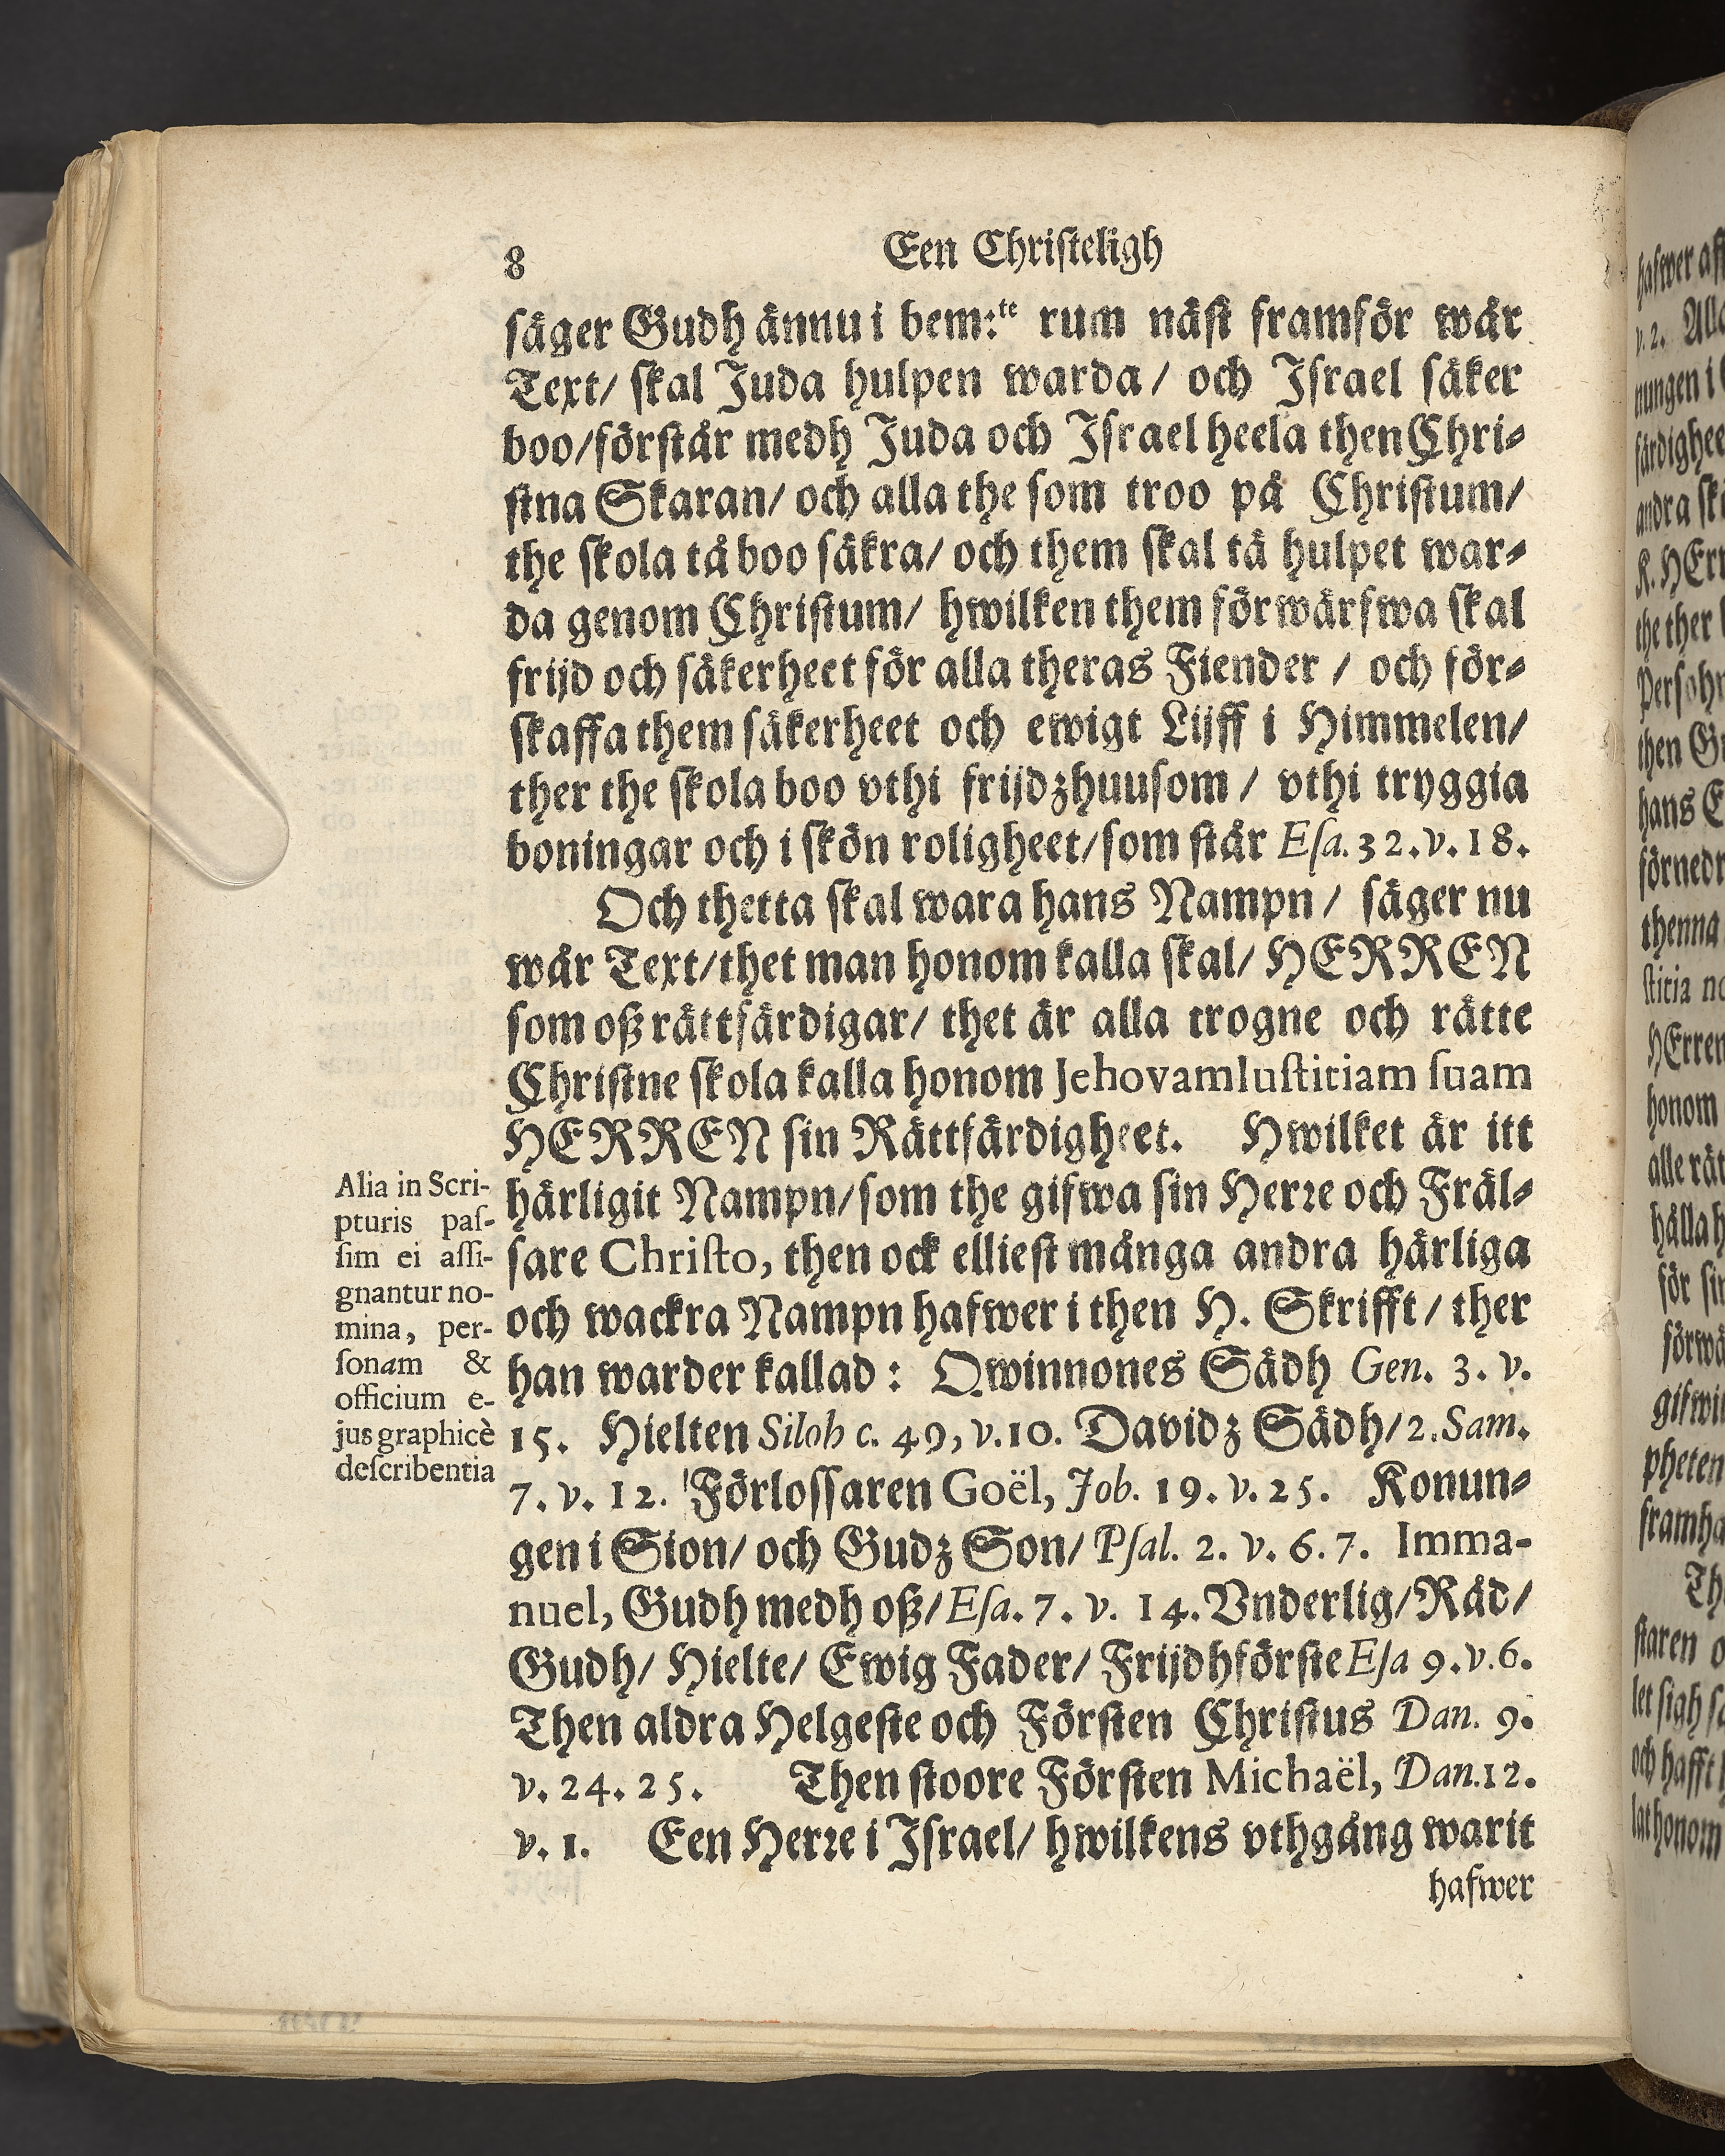 8
Een Christeligh
säger Gudh ännu i bem:te rum näst framför wår
Text/ skal Juda hulpen warda / och Jsrael säker
boo/förstår medh Juda och Jsrael heela then Chri-
stna Skaran/ och alla the som troo på Christum/
the skola tå boo säkra/ och them skal tå hulpet war-
da genom Christum/ hwilken them förwärfwa skal
frijd och säkerheet för alla theras Fiender / och för-
skaffa them säkerheet och ewigt Lijff i Himmelen/
ther the skola boo vthi frijdzhuusom / vthi tryggia
boningar och i skön roligheet/som står Esa. 32.v.18.
Och thetta skal wara hans Nampn / säger nu
wår Text/thet man honom kalla skal/ HERREN
som oß rättfärdigar/ thet är alla trogne och rätte
Christne skola kalla honom Jehovam Iustitiam suam
HERREN sin Rättfärdigheet. Hwilket är itt
härligit Nampn/som the gifwa sin Herre och Fräl-
sare Christo, then ock elliest många andra härliga
och wackra Nampn hafwer i then H. Skrifft / ther
han warder kallad : Qwinnones Sädh Gen. 3. v.
15. Hielten Siloh c. 49, v.10. Davidz Sädh/2.Sam.
7. v. 12. Förlossaren Goël, Job. 19. v. 25. Konun-
gen i Sion/ och Gudz Son/ Psal. 2. v. 6. 7. Imma-
nuel, Gudh medh oß/Esa. 7. v. 14. Vnderlig/Råd/
Gudh/ Hielte/ Ewig Fader/ Frijdhförste Esa 9.v.6.
Then aldra Helgeste och Försten Christus Dan. 9.
v. 24. 25. Then stoore Försten Michaël, Dan.12.
v. 1. Een Herre i Jsrael/ hwilkens vthgång warit
hafwer
Alia in Scri-
pturis pas-
sim ei assi-
gnantur no-
mina, per-
sonam &
officium e-
jus graphicè
describentia